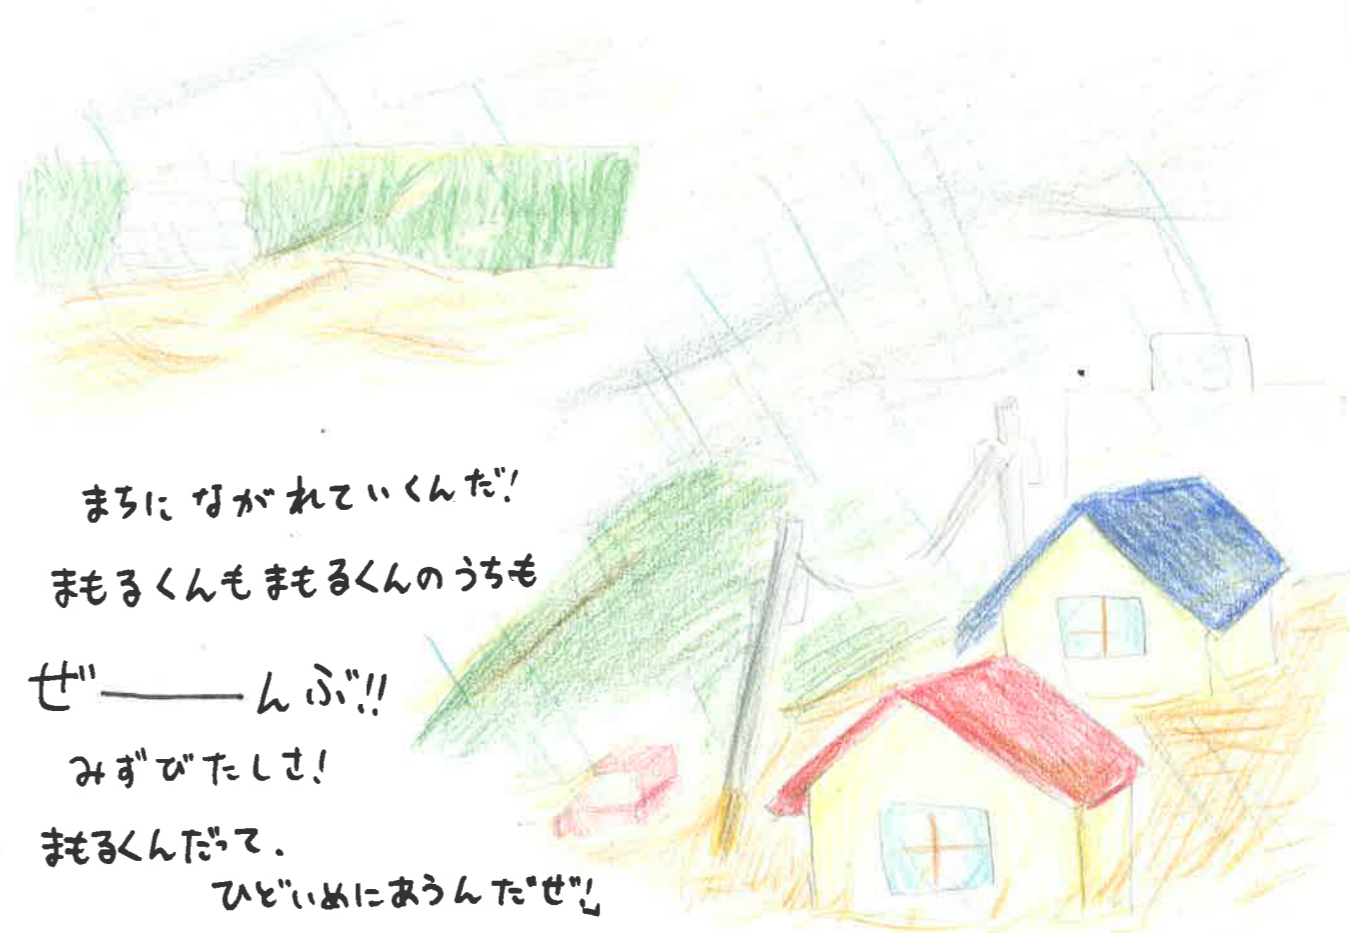 まちに ながれていくんだ!
まもるくんもまもるくんのうちも
ぜ―――んぶ!!
みずびたしさ!
まもるくんだって、
ひどいめにあうんだぜ!」